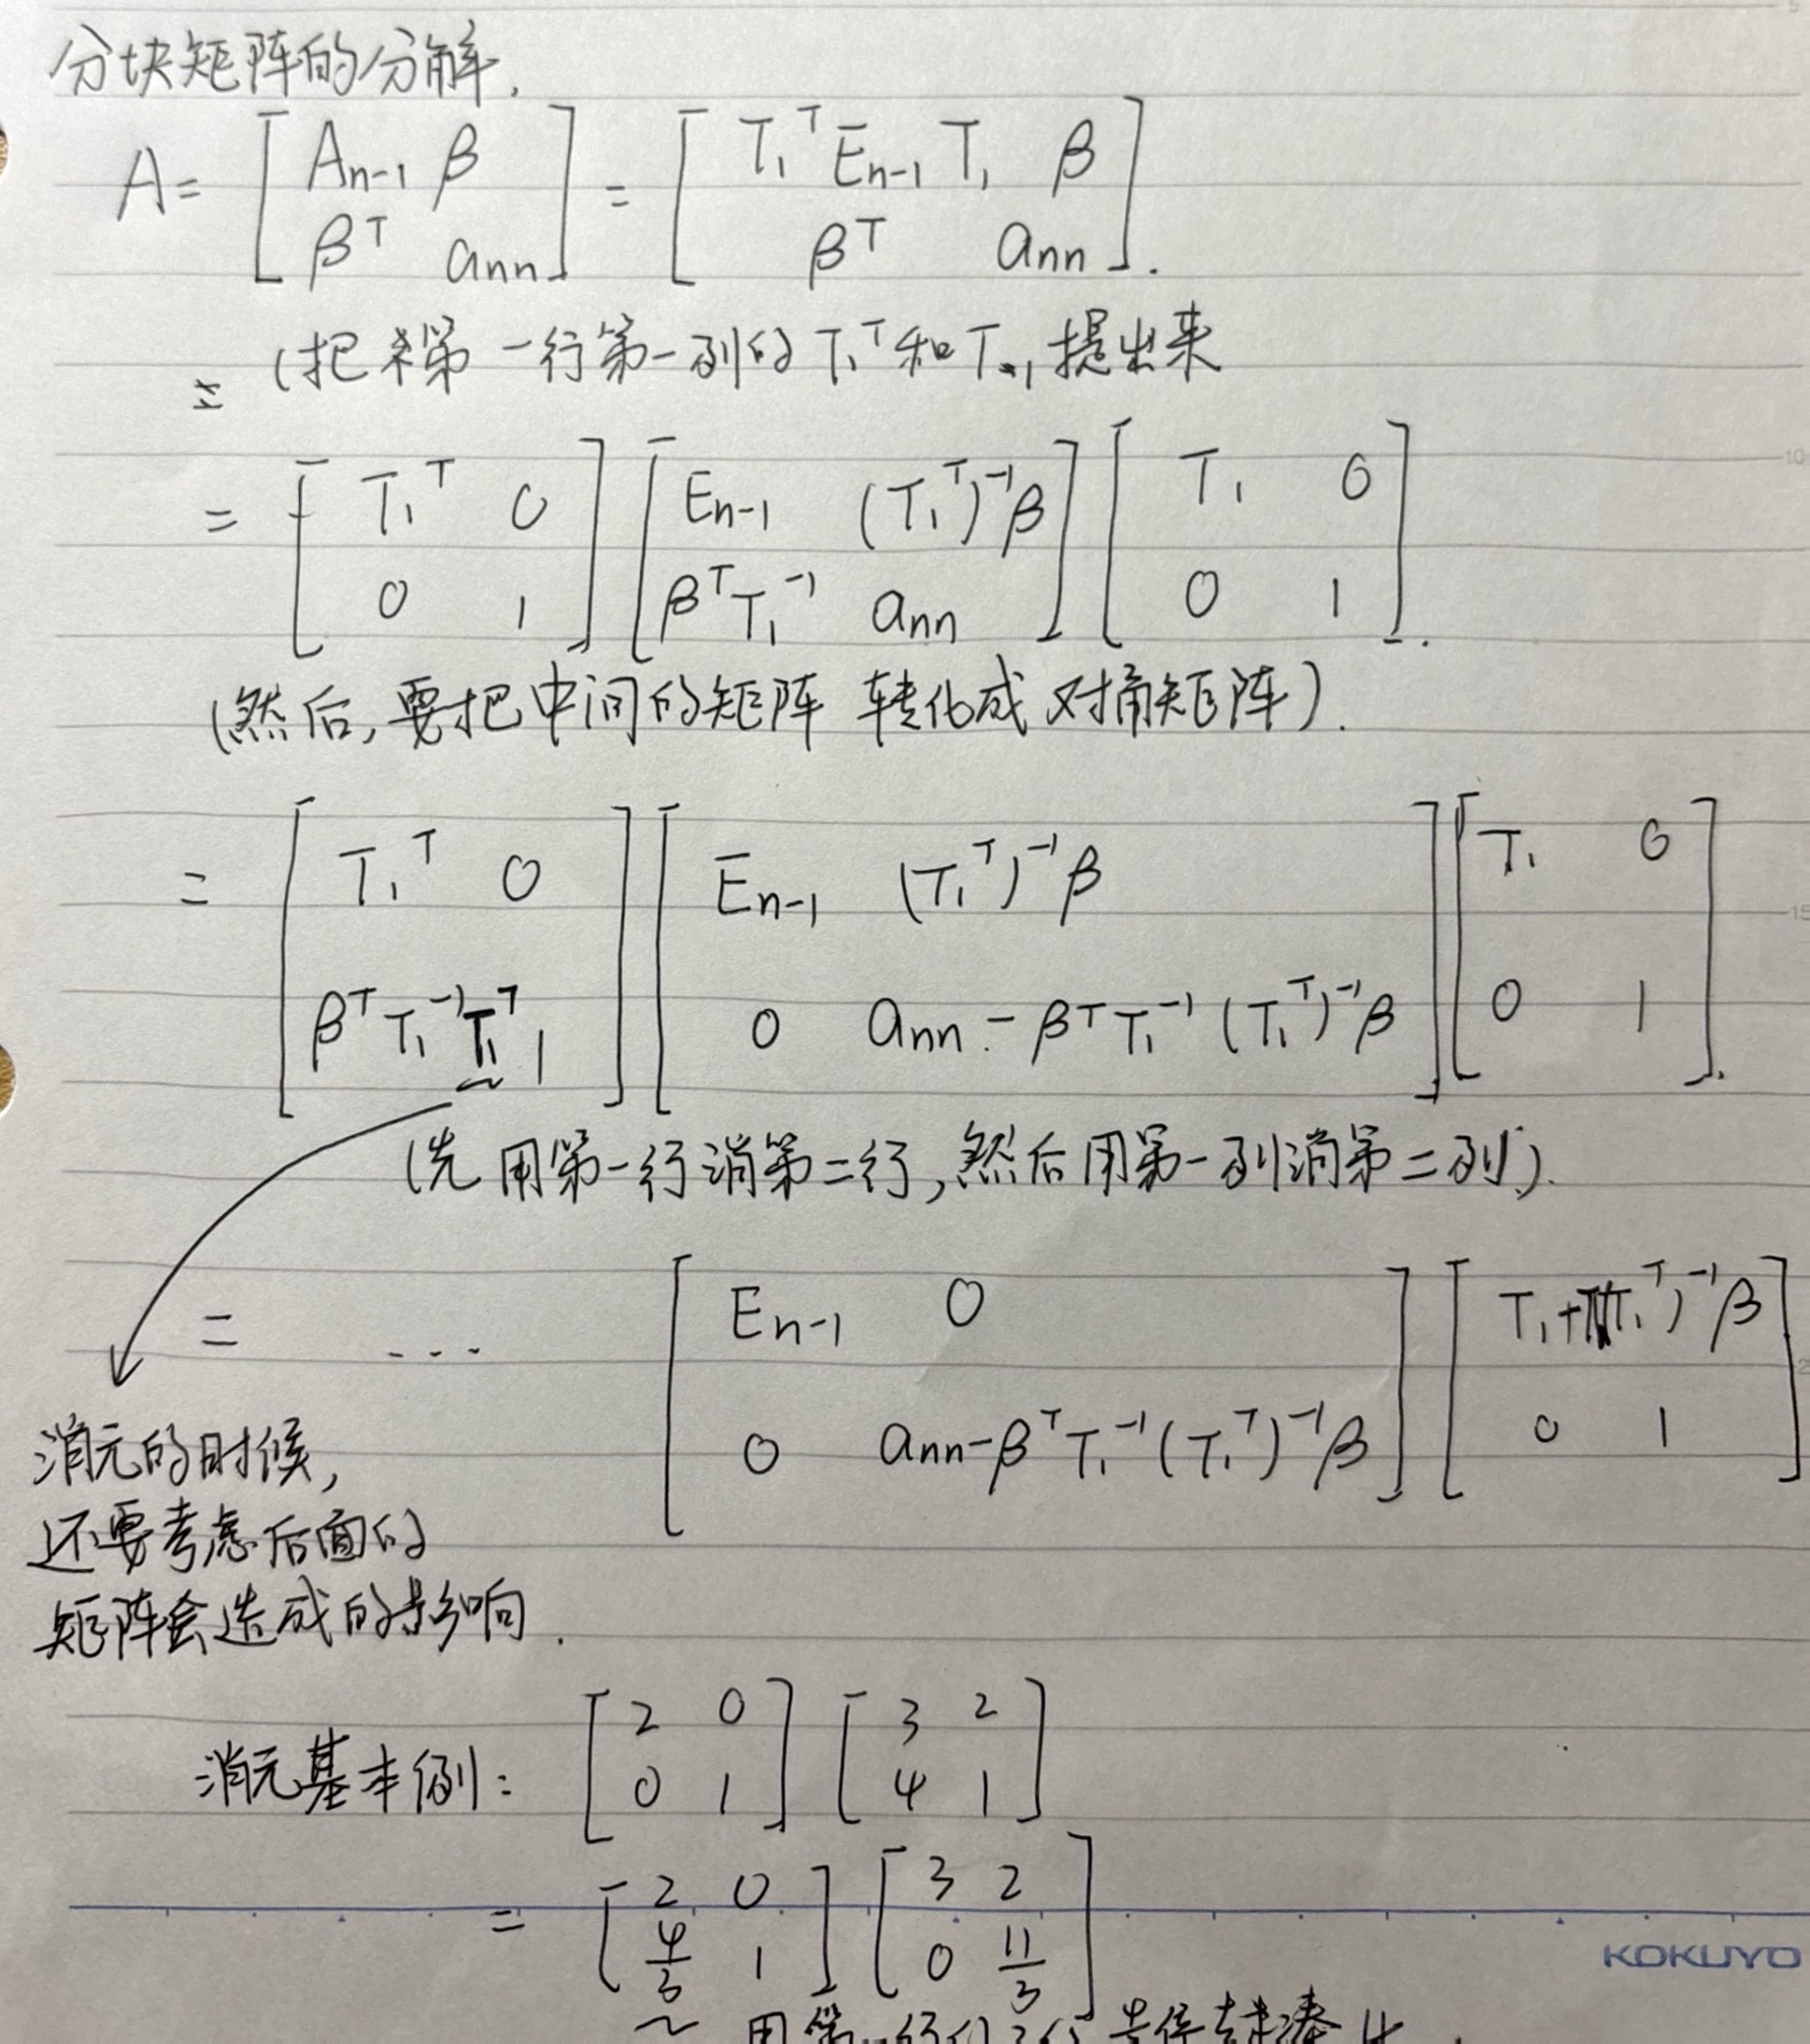 分块矩阵的分解.
A = [ A_{n-1} β ; β^T a_{nn} ] = [ T_1^T E_{n-1} T_1 β ; β^T a_{nn} ].
(把第一行第一列的 T_1^T 和 T_1 提出来
= [ T_1^T 0 ; 0 1 ] [ E_{n-1} (T_1^T)^{-1}β ; β^T T_1^{-1} a_{nn} ] [ T_1 0 ; 0 1 ].
(然后, 要把中间的矩阵 转化成 对角矩阵).
= [ T_1^T 0 ; β^T T_1^{-1} T_1^T 1 ] [ E_{n-1} (T_1^T)^{-1}β ; 0 a_{nn} - β^T T_1^{-1} (T_1^T)^{-1}β ] [ T_1 0 ; 0 1 ].
(先用第一行消第二行, 然后用第一列消第二列).
= ... [ E_{n-1} 0 ; 0 a_{nn} - β^T T_1^{-1} (T_1^T)^{-1}β ] [ T_1 + (T_1^T)^{-1}β ; 0 1 ]
消元的时候,
还要考虑后面的
矩阵会造成的影响.
消元基本例: [ 2 0 ; 0 1 ] [ 3 2 ; 4 1 ]
= [ 2 0 ; 4/3 1 ] [ 3 2 ; 0 11/3 ]
KOKUYO
用第一行